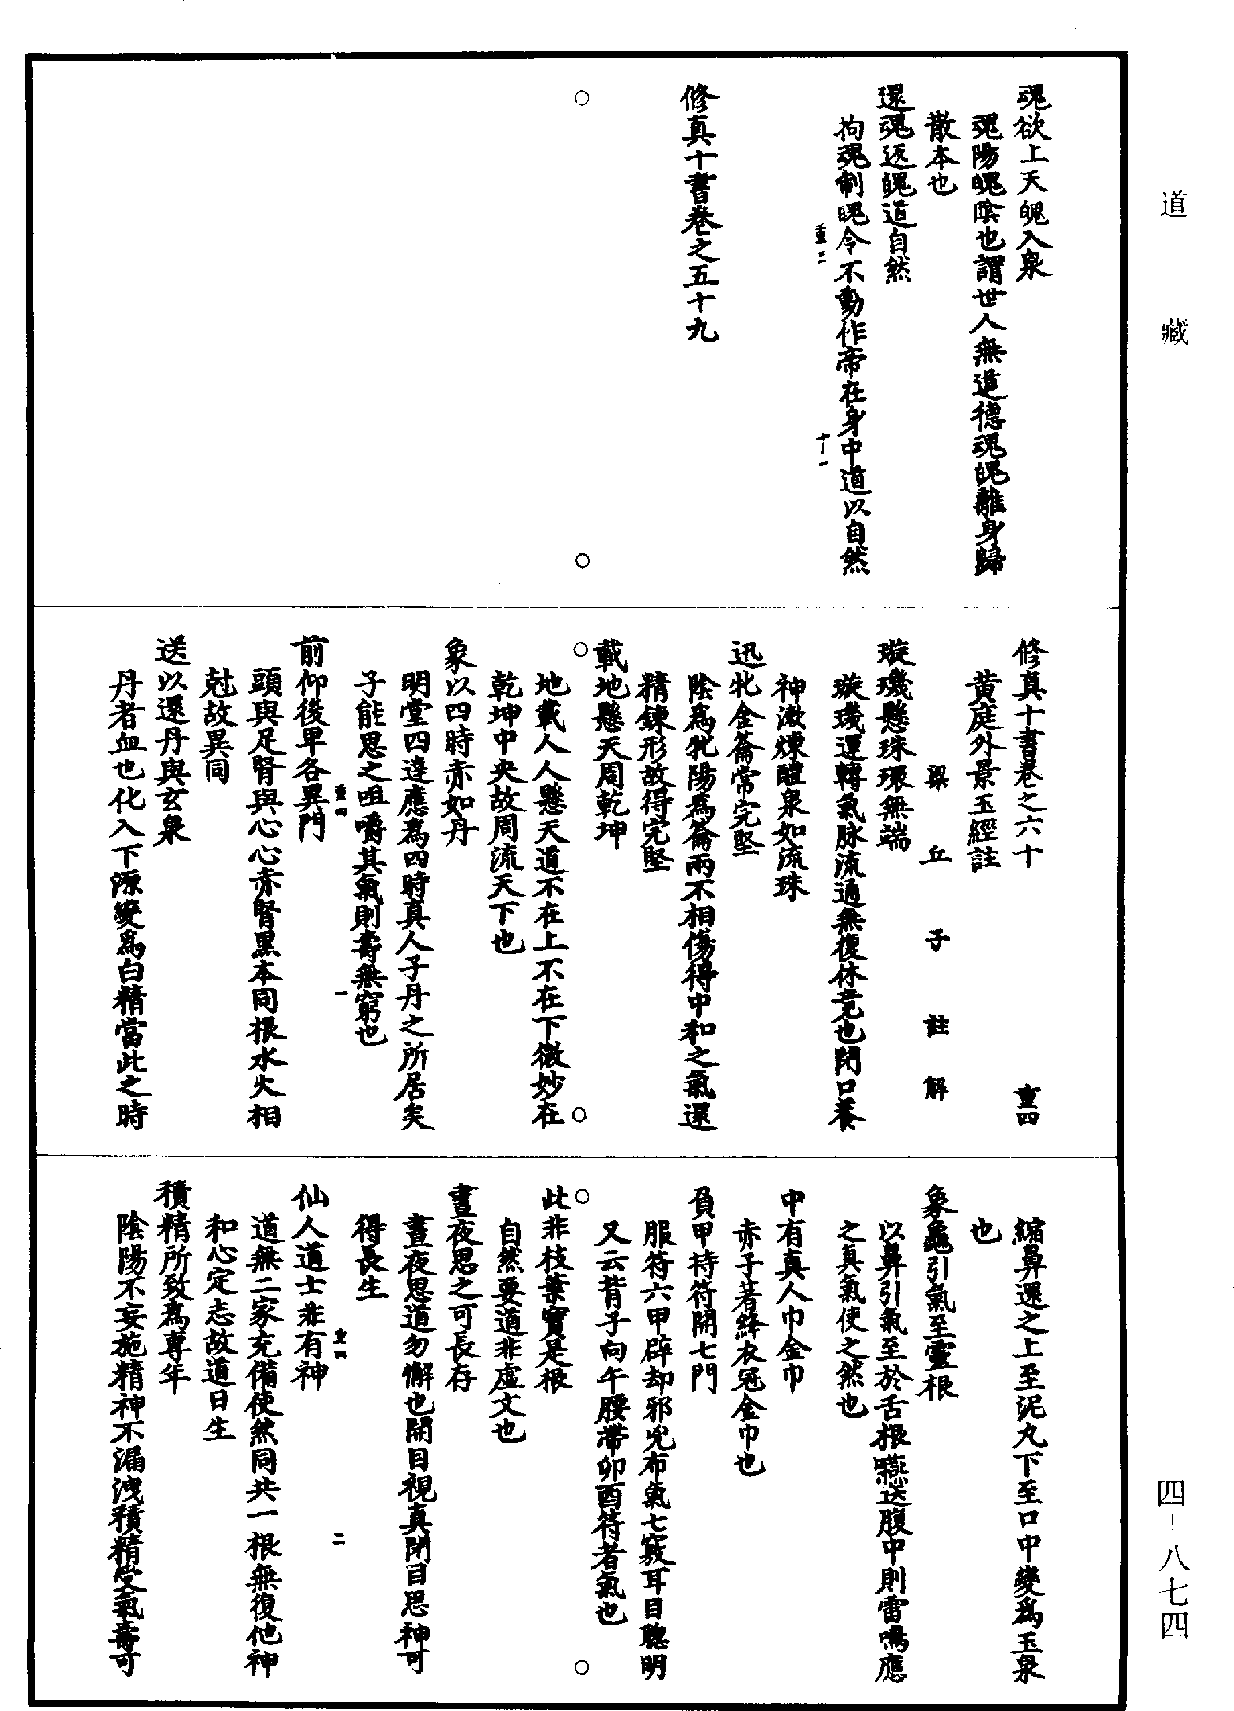 道藏
魂欲上天魄入泉
魂陽魄陰也謂世人無道德魂魄離身歸
散本也
還魂返魄道自然
拘魂制魄令不動作帝在身中道以自然
重三
十一
修真十書卷之五十九
修真十書卷之六十
重四
黃庭外景玉經註
梁丘子註解
璇璣懸珠環無端
璇璣運轉氣脉流通無復休竟也閉口養
神漱煉醴泉如流珠
迅牝金籥常完堅
陰為牝陽為籥兩不相傷得中和之氣還
精鍊形故得完堅
載地懸天周乾坤
地載人人懸天道不在上不在下微妙在
乾坤中央故周流天下也
象以四時赤如丹
明堂四達應為四時真人子丹之所居矣
子能思之咀嚼其氣則壽無窮也
重四
一
前仰後卑各異門
頭與足腎與心心赤腎黑本同根水火相
尅故異同
送以還丹與玄泉
丹者血也化入下源變為白精當此之時
縮鼻還之上至泥丸下至口中變為玉泉
也
象龜引氣至靈根
以鼻引氣至於舌根嚥送腹中則雷鳴應
之真氣使之然也
中有真人巾金巾
赤子著絳衣冠金巾也
負甲持符開七門
服符六甲辟却邪兇布氣七竅耳目聰明
又云背子向午腰帶卯酉符者氣也
此非枝葉實是根
自然要道非虛文也
晝夜思之可長存
晝夜思道勿懈也開目視真閉目思神可
得長生
重四
二
仙人道士非有神
道無二家充備使然同共一根無復他神
和心定志故道日生
積精所致為專年
陰陽不妄施精神不漏洩積精受氣壽可
四-八七四